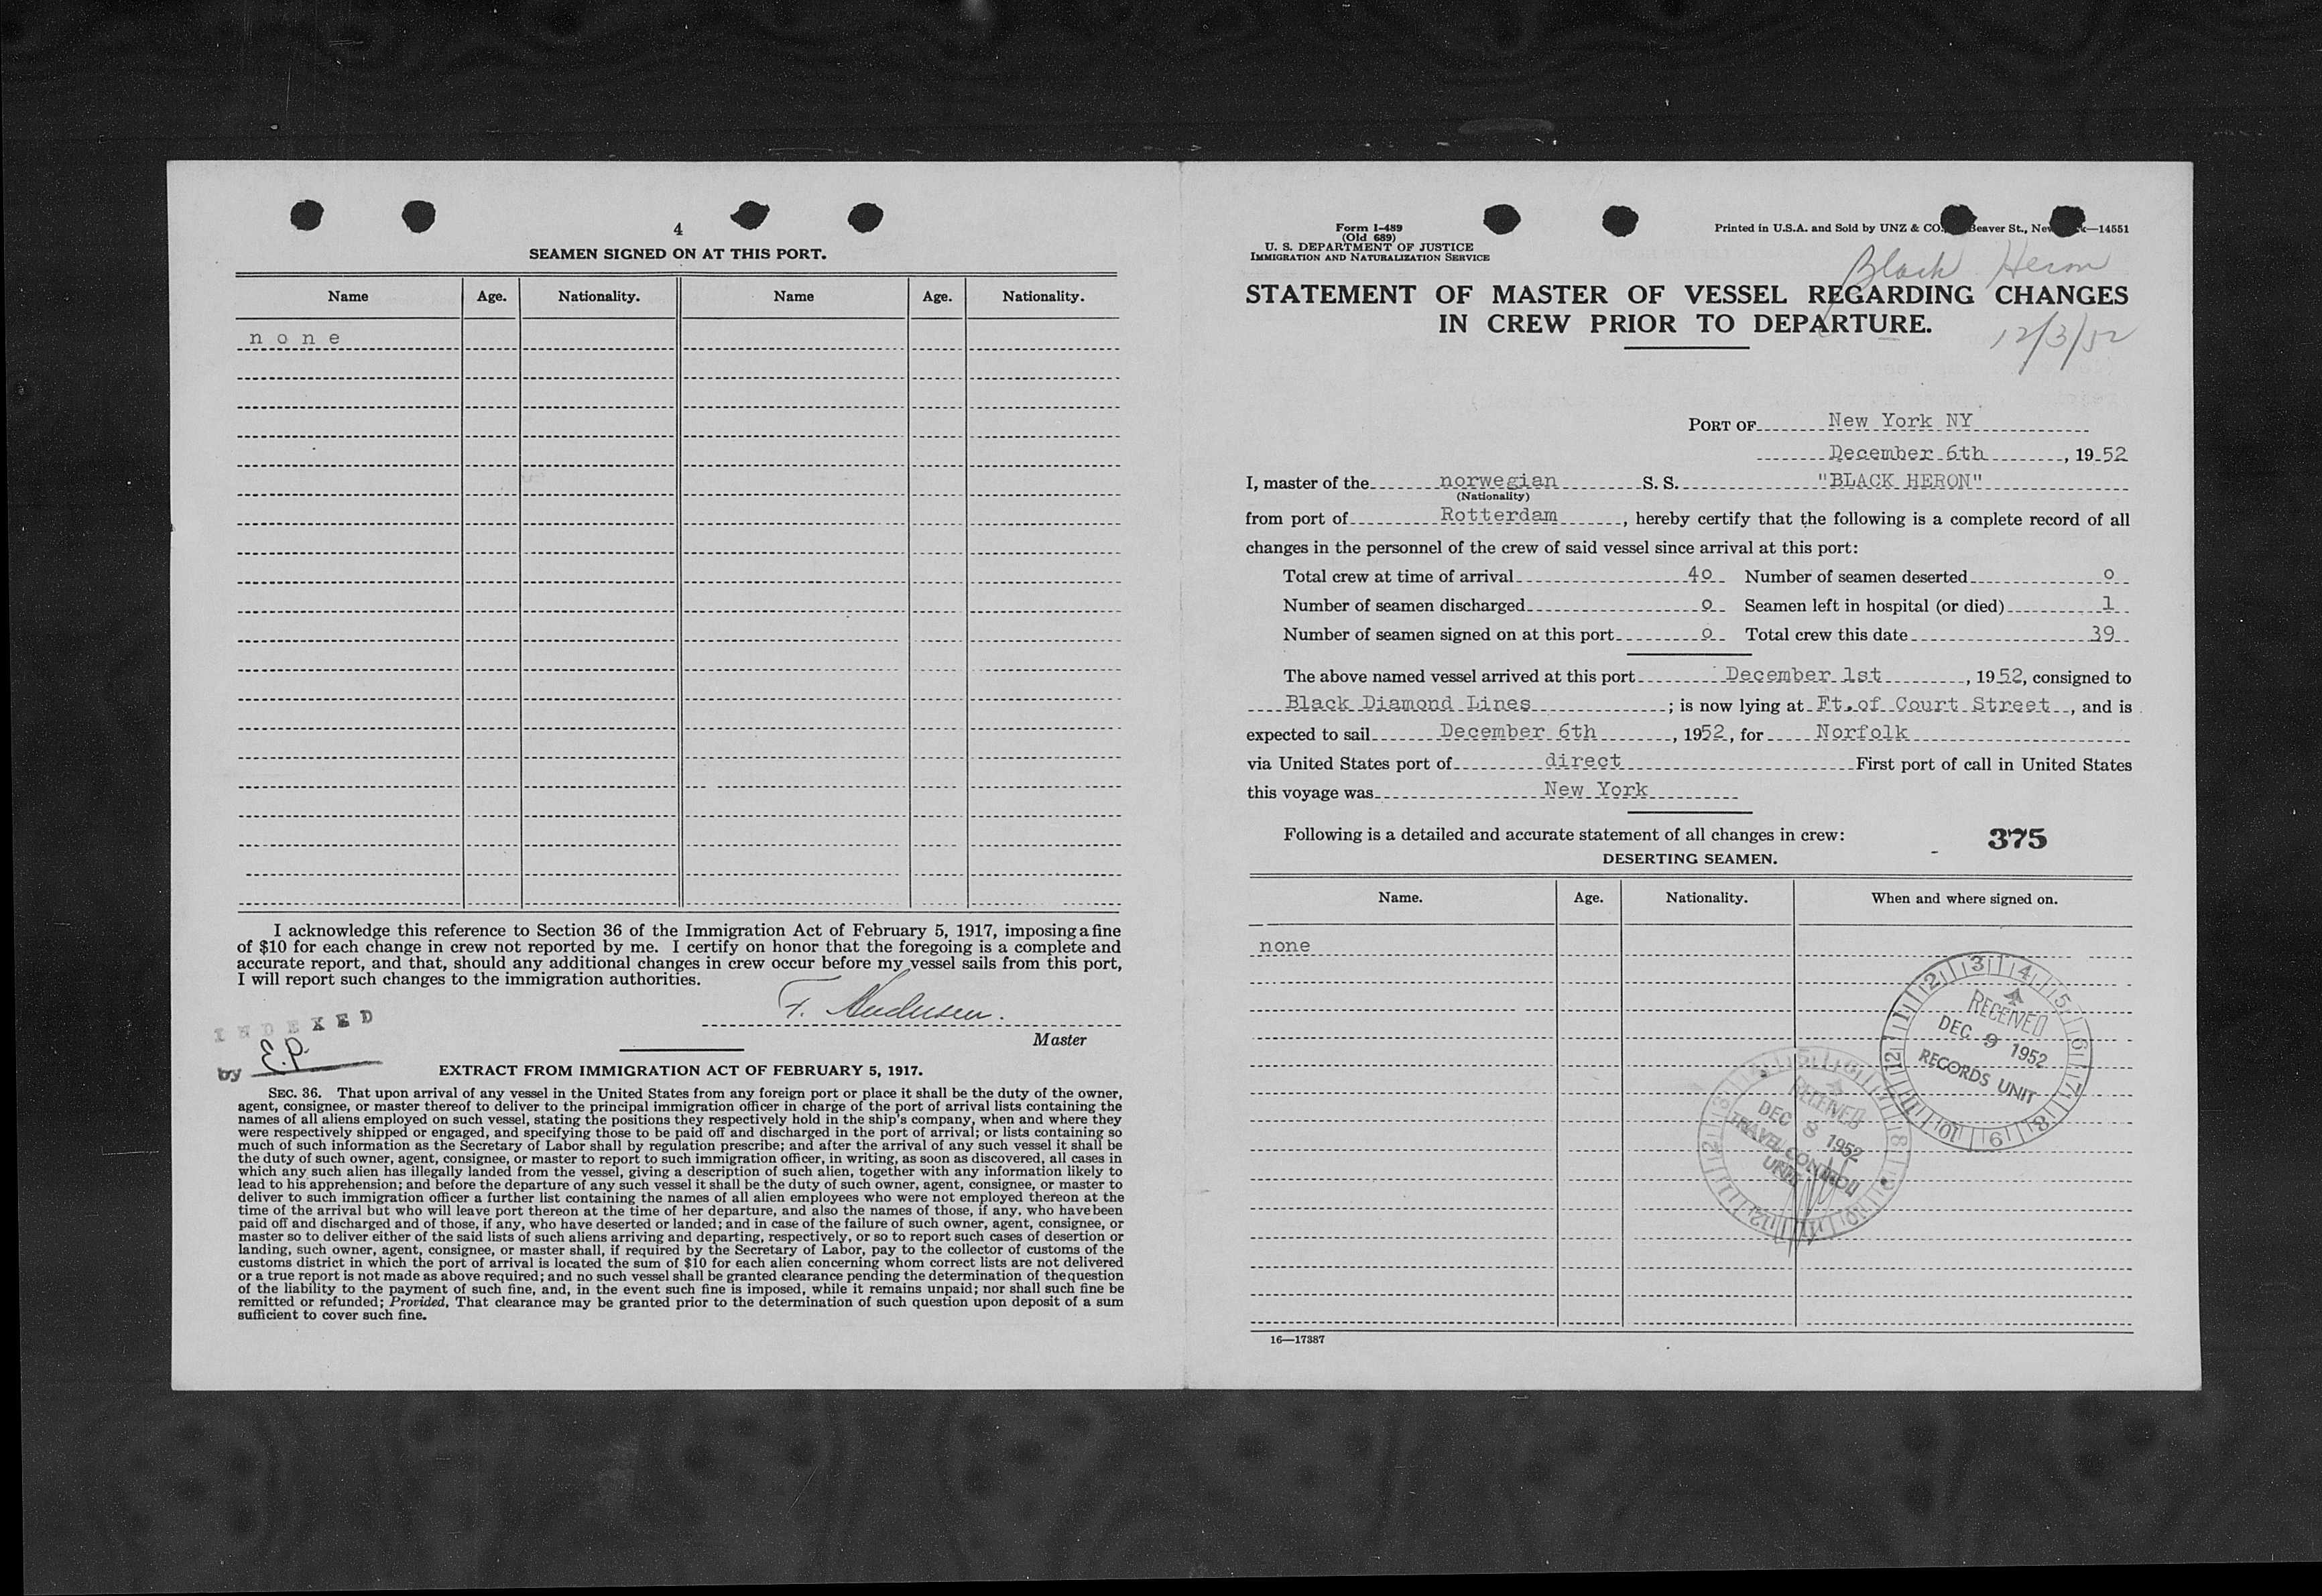 4
SEAMEN SIGNED ON AT THIS PORT.
Name Age. Nationality. Name Age. Nationality.
none
I acknowledge this reference to Section 36 of the Immigration Act of February 5, 1917, imposing a fine
of $10 for each change in crew not reported by me. I certify on honor that the foregoing is a complete and
accurate report, and that, should any additional changes in crew occur before my vessel sails from this port,
I will report such changes to the immigration authorities.
F. Andersen.
Master
INDEXED
by E.P.
EXTRACT FROM IMMIGRATION ACT OF FEBRUARY 5, 1917.
SEC. 36. That upon arrival of any vessel in the United States from any foreign port or place it shall be the duty of the owner,
agent, consignee, or master thereof to deliver to the principal immigration officer in charge of the port of arrival lists containing the
names of all aliens employed on such vessel, stating the positions they respectively hold in the ship's company, when and where they
were respectively shipped or engaged, and specifying those to be paid off and discharged in the port of arrival; or lists containing so
much of such information as the Secretary of Labor shall by regulation prescribe; and after the arrival of any such vessel it shall be
the duty of such owner, agent, consignee, or master to report to such immigration officer, in writing, as soon as discovered, all cases in
which any such alien has illegally landed from the vessel, giving a description of such alien, together with any information likely to
lead to his apprehension; and before the departure of any such vessel it shall be the duty of such owner, agent, consignee, or master to
deliver to such immigration officer a further list containing the names of all alien employees who were not employed thereon at the
time of the arrival but who will leave port thereon at the time of her departure, and also the names of those, if any. who have been
paid off and discharged and of those, if any, who have deserted or landed; and in case of the failure of such owner, agent, consignee, or
master so to deliver either of the said lists of such aliens arriving and departing, respectively, or so to report such cases of desertion or
landing, such owner, agent, consignee, or master shall, if required by the Secretary of Labor, pay to the collector of customs of the
customs district in which the port of arrival is located the sum of $10 for each alien concerning whom correct lists are not delivered
or a true report is not made as above required; and no such vessel shall be granted clearance pending the determination of the question
of the liability to the payment of such fine, and, in the event such fine is imposed, while it remains unpaid; nor shall such fine be
remitted or refunded; Provided, That clearance may be granted prior to the determination of such question upon deposit of a sum
sufficient to cover such fine.
Form I-489
(Old 689)
U. S. DEPARTMENT OF JUSTICE
IMMIGRATION AND NATURALIZATION SERVICE
Printed in U.S.A. and Sold by UNZ & CO. Beaver St., New —14551
Black Heron
STATEMENT OF MASTER OF VESSEL REGARDING CHANGES
IN CREW PRIOR TO DEPARTURE.
12/3/52
PORT OF New York NY
December 6th, 1952
I, master of the norwegian S. S. "BLACK HERON"
(Nationality)
from port of Rotterdam, hereby certify that the following is a complete record of all
changes in the personnel of the crew of said vessel since arrival at this port:
Total crew at time of arrival 4o Number of seamen deserted o
Number of seamen discharged o Seamen left in hospital (or died) 1
Number of seamen signed on at this port o Total crew this date 39
The above named vessel arrived at this port December 1st, 1952, consigned to
Black Diamond Lines; is now lying at Ft.of Court Street, and is
expected to sail December 6th, 1952, for Norfolk
via United States port of direct First port of call in United States
this voyage was New York
Following is a detailed and accurate statement of all changes in crew: 375
DESERTING SEAMEN.
Name. Age. Nationality. When and where signed on.
none
1 2 3 4 5 6 7 8 9 10 11 12
RECEIVED
DEC 9 1952
RECORDS UNIT
RECEIVED
DEC 8 1952
TRAVEL CONTROL
UNIT
16—17387